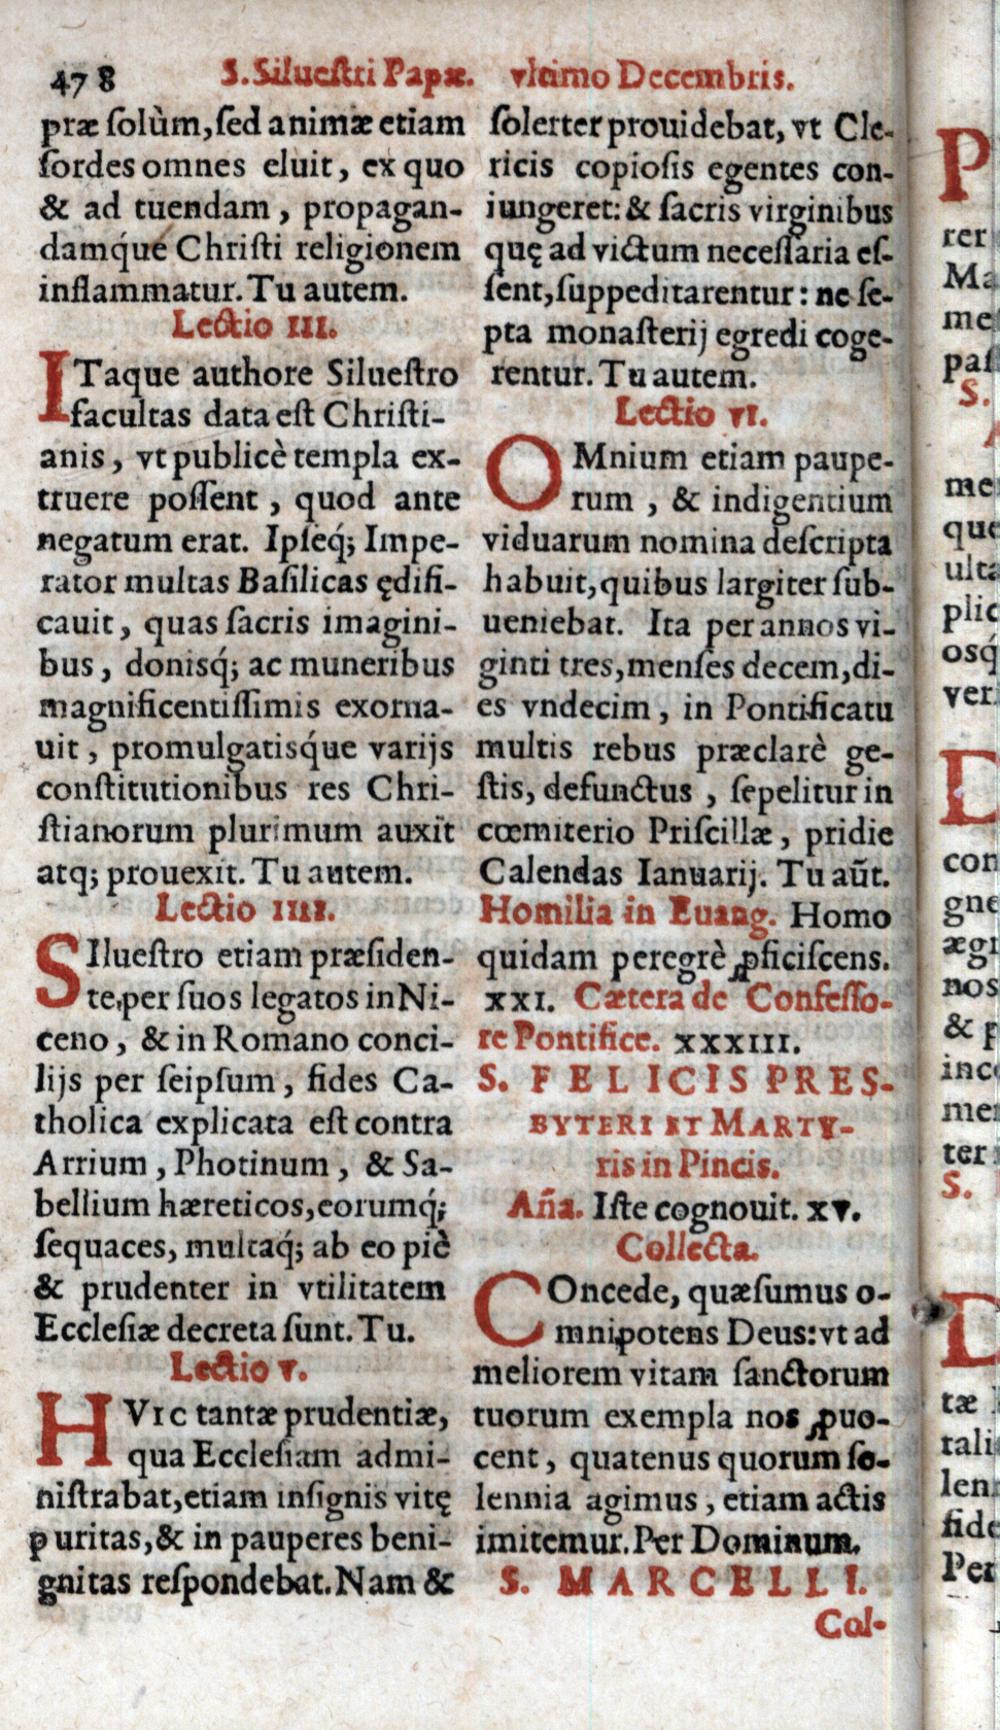 478 S. Silueſtri Papæ. vltimo Decembris.
præ ſolùm, ſed animæ etiam
ſordes omnes eluit, ex quo
& ad tuendam, propagan-
damq́ue Chriſti religionem
inflammatur. Tu autem.
Lectio III.
ITaque authore Silueſtro
facultas data eſt Chriſti-
anis, vt publicè templa ex-
truere poſſent, quod ante
negatum erat. Ipſeq́; Impe-
rator multas Baſilicas ędifi-
cauit, quas ſacris imagini-
bus, donisq́; ac muneribus
magnificentiſſimis exorna-
uit, promulgatisq́ue varijs
conſtitutionibus res Chri-
ſtianorum plurimum auxit
atq; prouexit. Tu autem.
Lectio IIII.
SIlueſtro etiam præſiden-
te, per ſuos legatos in Ni-
ceno, & in Romano conci-
lijs per ſeipſum, fides Ca-
tholica explicata eſt contra
Arrium, Photinum, & Sa-
bellium hæreticos, eorumq́;
ſequaces, multaq́; ab eo piè
& prudenter in vtilitatem
Eccleſiæ decreta ſunt. Tu.
Lectio V.
HVIC tantæ prudentiæ,
qua Eccleſiam admi-
niſtrabat, etiam inſignis vitę
puritas, & in pauperes beni-
gnitas reſpondebat. Nam &
ſolerter prouidebat, vt Cle-
ricis copioſis egentes con-
iungeret: & ſacris virginibus
quę ad victum neceſſaria eſ-
ſent, ſuppeditarentur: ne ſe-
pta monaſterij egredi coge-
rentur. Tu autem.
Lectio VI.
OMnium etiam paupe-
rum, & indigentium
viduarum nomina deſcripta
habuit, quibus largiter ſub-
ueniebat. Ita per annos vi-
ginti tres, menſes decem, di-
es vndecim, in Pontificatu
multis rebus præclarè ge-
ſtis, defunctus, ſepelitur in
cœmiterio Priſcillæ, pridie
Calendas Ianuarij. Tu aūt.
Homilia in Euang. Homo
quidam peregrè ꝓficiſcens.
XXI. Cætera de Confeſſo-
re Pontifice. XXXIII.
S. FELICIS PRES-
BYTERI ET MARTY-
ris in Pincis.
Añа. Iſte cognouit. XV.
Collecta.
COncede, quæſumus o-
mnipotens Deus: vt ad
meliorem vitam ſanctorum
tuorum exempla nos ꝓuo-
cent, quatenus quorum ſo-
lennia agimus, etiam actis
imitemur. Per Dominum.
S. MARCELLI.
Col-
P
rer
Ma
me
paſ
S.
me
que
ulta
plic
osq́
ver
D
con
gne
ægr
nos
& p
inc
me
ter
S.
D
tæ
tali
len
fide
Per